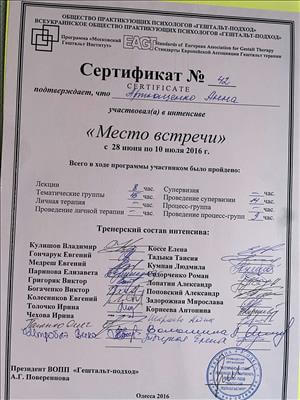 ОБЩЕСТВО ПРАКТИКУЮЩИХ ПСИХОЛОГОВ «ГЕШТАЛЬТ-ПОДХОД»
ВСЕУКРАИНСКОЕ ОБЩЕСТВО ПРАКТИКУЮЩИХ ПСИХОЛОГОВ «ГЕШТАЛЬТ-ПОДХОД»
Программа «Московский Гештальт Институт»
EAGT
Standards of European Association for Gestalt Therapy
Стандарты Европейской Ассоциации Гештальт терапии
Сертификат № 42
CERTIFICATE
подтверждает, что Анна
участвовал(а) в интенсиве
«Место встречи»
с 28 июня по 10 июля 2016 г.
Всего в ходе программы участником было пройдено:
Лекции 8 час.
Тематические группы час.
Личная терапия – час.
Проведение личной терапии – час.
Супервизия – час.
Проведение супервизии час.
Процесс-группа – час.
Проведение процесс-групп 9 час.
Тренерский состав интенсива:
Кулишов Владимир
Гончарук Евгений
Медреш Евгений
Парипова Елизавета
Григорик Виктор
Богаченко Виктор
Колесников Евгений
Толочко Ирина
Чехова Ирина
Коссе Елена
Тадыка Таисия
Кумпан Людмила
Сидорченко Роман
Лопатин Александр
Поповский Александр
Задорожная Мирослава
Корнеева Антонина
Президент ВОПП «Гештальт-подход»
А.Г. Поверенновa
Одесса 2016